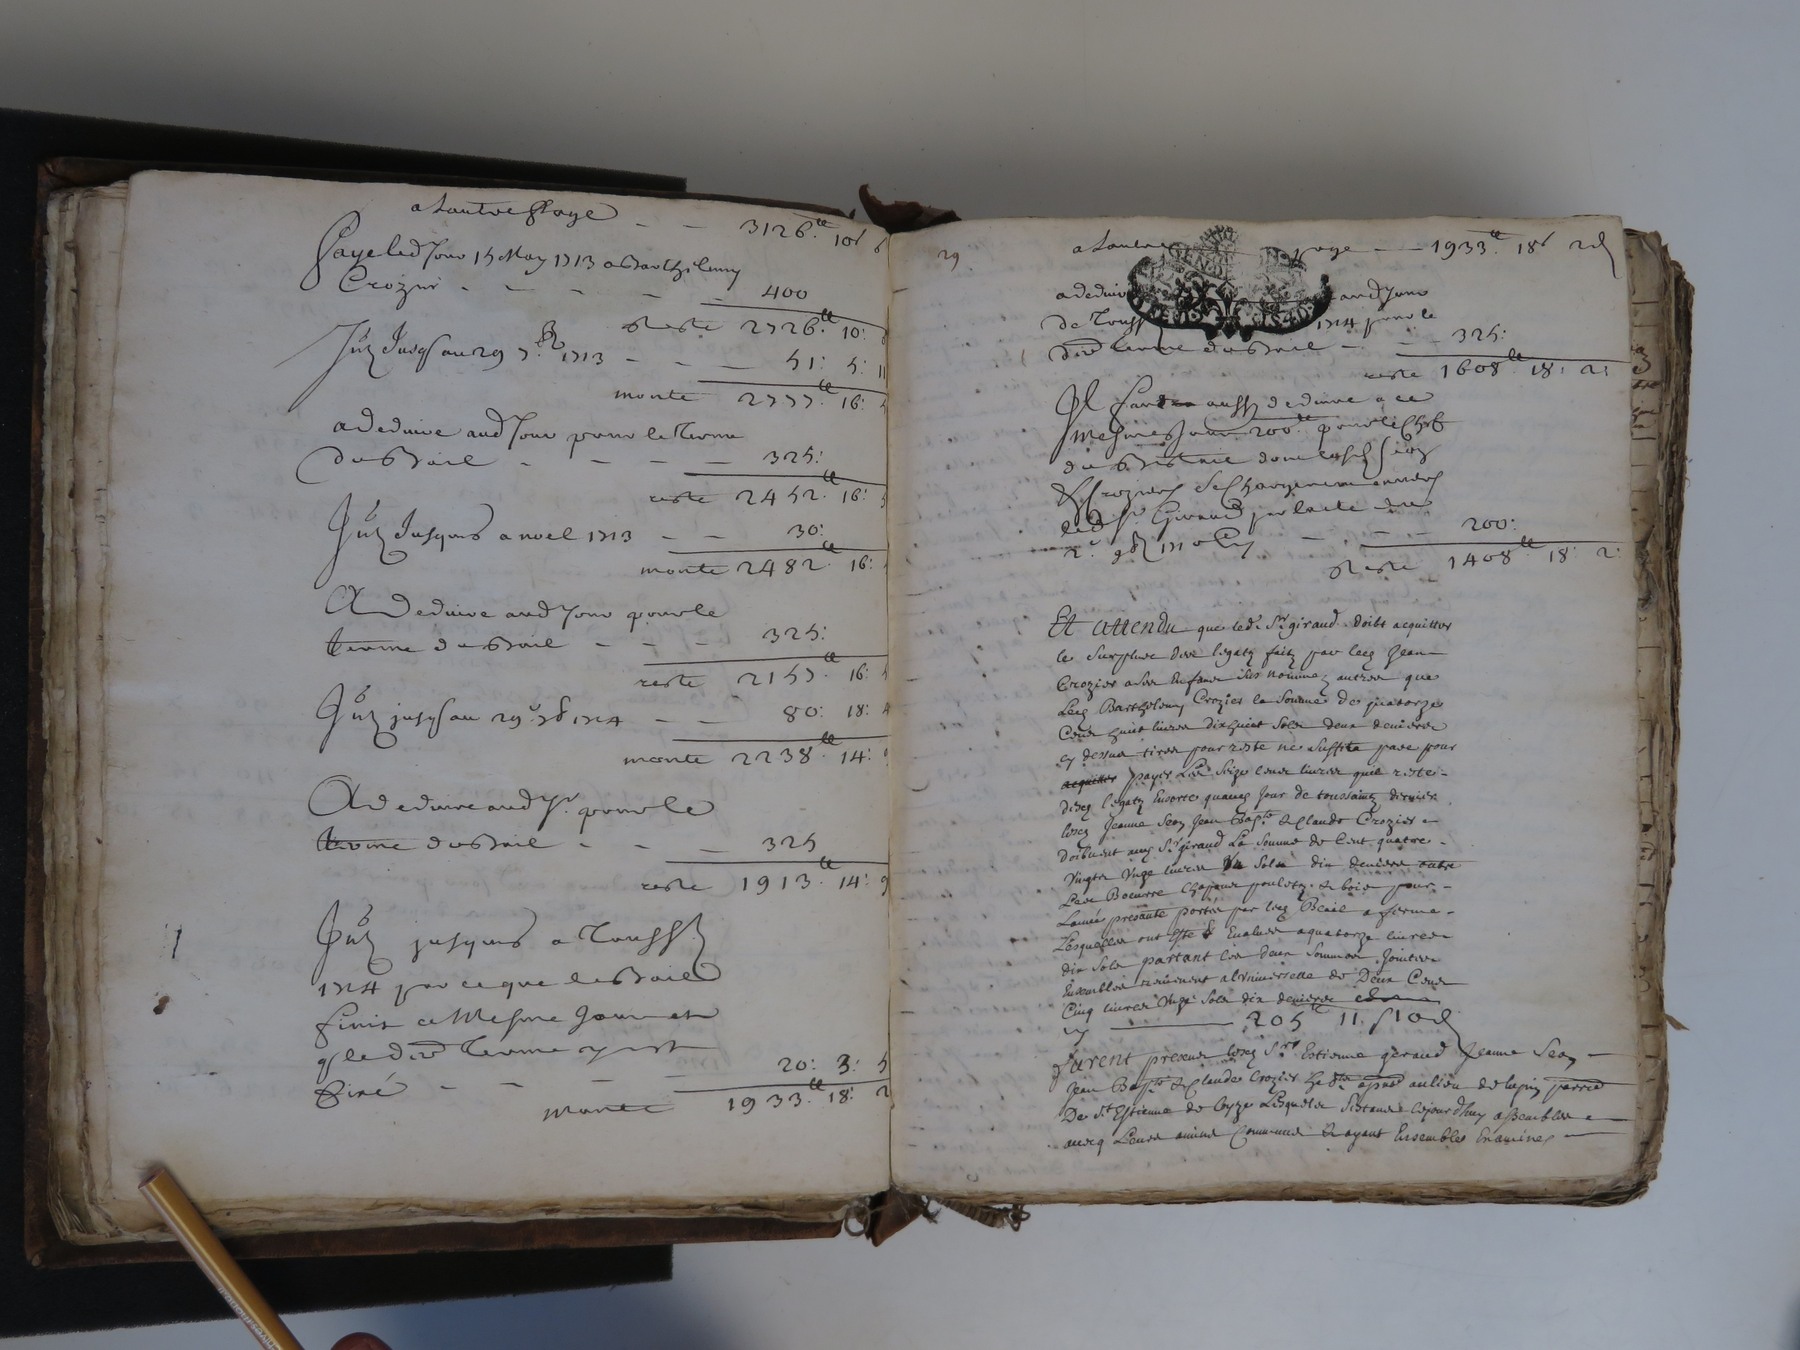 a Lautre Page - - 3126.lt 10s 6
Paye led Jour 15 May 1713 a Barthelemy
Crozier - - - - - 400
Reste 2726.lt 10:
Jnt Jusqau 29 7.bre 1713 - - - 51: 5: 11
monte 2777.lt 16: 5
a deduire aud Jour pour le terme
du Bail - - - - 325:
reste 2452.lt 16: 5
Jnt Jusques a noel 1713 - - 30:
monte 2482.lt 16:
A Deduire aud Jour pour le
terme du Bail - - - 325:
reste 2157.lt 16: 5
Jnt jusqau 29.e 1714 - - 80: 18: 4
monte 2238.lt 14: 9
A deduire aud Jr. pour le
terme du Bail - - - 325
reste 1913.lt 14: 9
Jnt jusques a Touss
1714 par ce que le Bail
finit ce Mesme Jour et
q le dit Terme y est
tiré - - - - 20: 3: 5
Monte 1933.lt 18: 2
29
a Lautre page - 1933.lt 18s 2d
a deduire aud Jour
de Touss 1714 pour le
dit terme du Bail - - 325:
reste 1608.lt 18: 2:
Il faut aussy deduire a ce
mesme Jour 200.lt pour le
du dont
Croziers se chargerent envers
led Sr. Giraud par lacte du
2.e 1710 - - - 200:
Reste 1408.lt 18: 2:
Et attendu que led. Sr. giraud doibt acquitter
le surplus des legatz faitz par led Jean
Crozier a ses Enfans sus nommez autres que
Led Barthelemy Crozier la Somme de quatorze
Cens huit livres dixhuit Sols deux deniers
cy dessus tirée pour reste ne suffit pas pour
acquitter payer Les Seize cens livres quil reste
desd legatz En sorte quaud Jour de toussaintz dernier
lesd Jeanne Jean Bapte & Claude Crozier
doibvent aud Sr. giraud La Somme de Cent quatre
vingts Unze livres Un Sols dix deniers outre
Les Beurre Chapons pouletz & bois pour
Lannée presante portés par led Bail a ferme
Lesquelles ont esté Evalues a quatorze livres
dix Sols partant les deux Sommes Jointes
Ensembles reviennent a lUniverselle de Deux Cens
Cinq livres Unze Sols dix deniers
cy 205lt 11s 10d
furent presens lesd Srs. Estienne geraud Jeanne
Jean Bapte & Claude Crozier au lieu de lapin parroisse
De St. Estienne de Lesquels Sestans cejourdhuy assembles
avecq Leurs amis Communs & ayant Ensembles Examinés